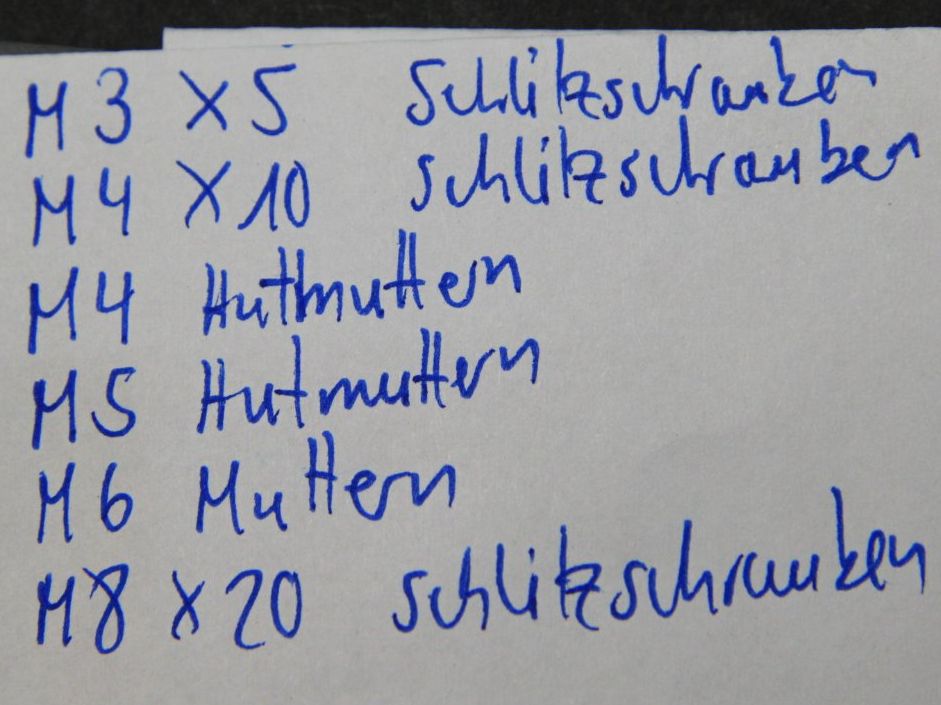 M3 x 5 Schlitzschrauben
M4 x 10 Schlitzschrauben
M4 Hutmuttern
M5 Hutmuttern
M6 Muttern
M8 x 20 Schlitzschrauben